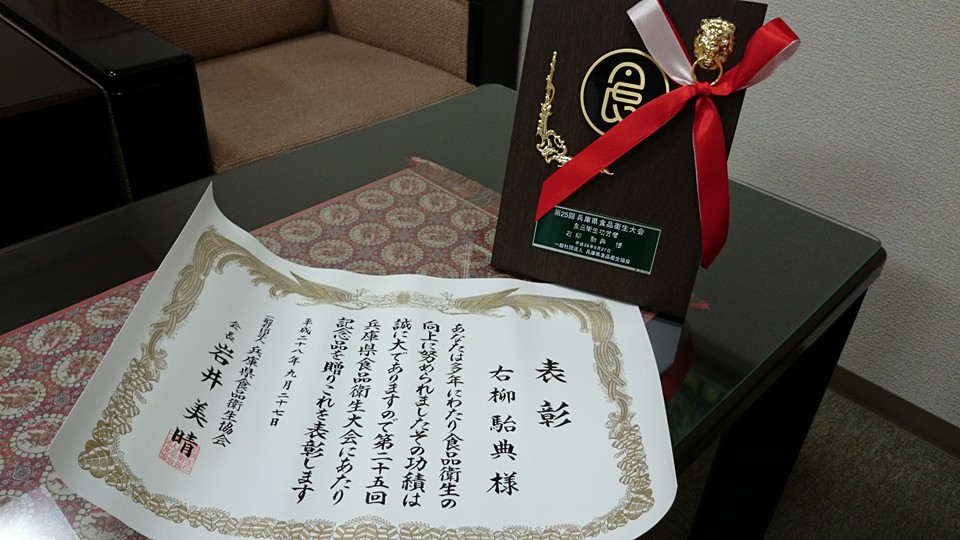 表彰
右柳 駘典 様
あなたは多年にわたり食品衛生の
向上に努められましたその功績は
誠に大でありますので第二十五回
兵庫県食品衛生大会にあたり
記念品を贈りこれを表彰します
平成二十八年九月二十七日
一般社団法人 兵庫県食品衛生協会
会長 岩井 美晴
食
第25回 兵庫県食品衛生大会
食品衛生功労者
右柳 駘典 様
平成28年9月27日
一般社団法人 兵庫県食品衛生協会